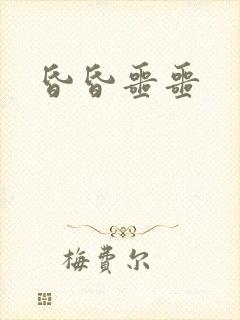 昏昏噩噩
梅费尔